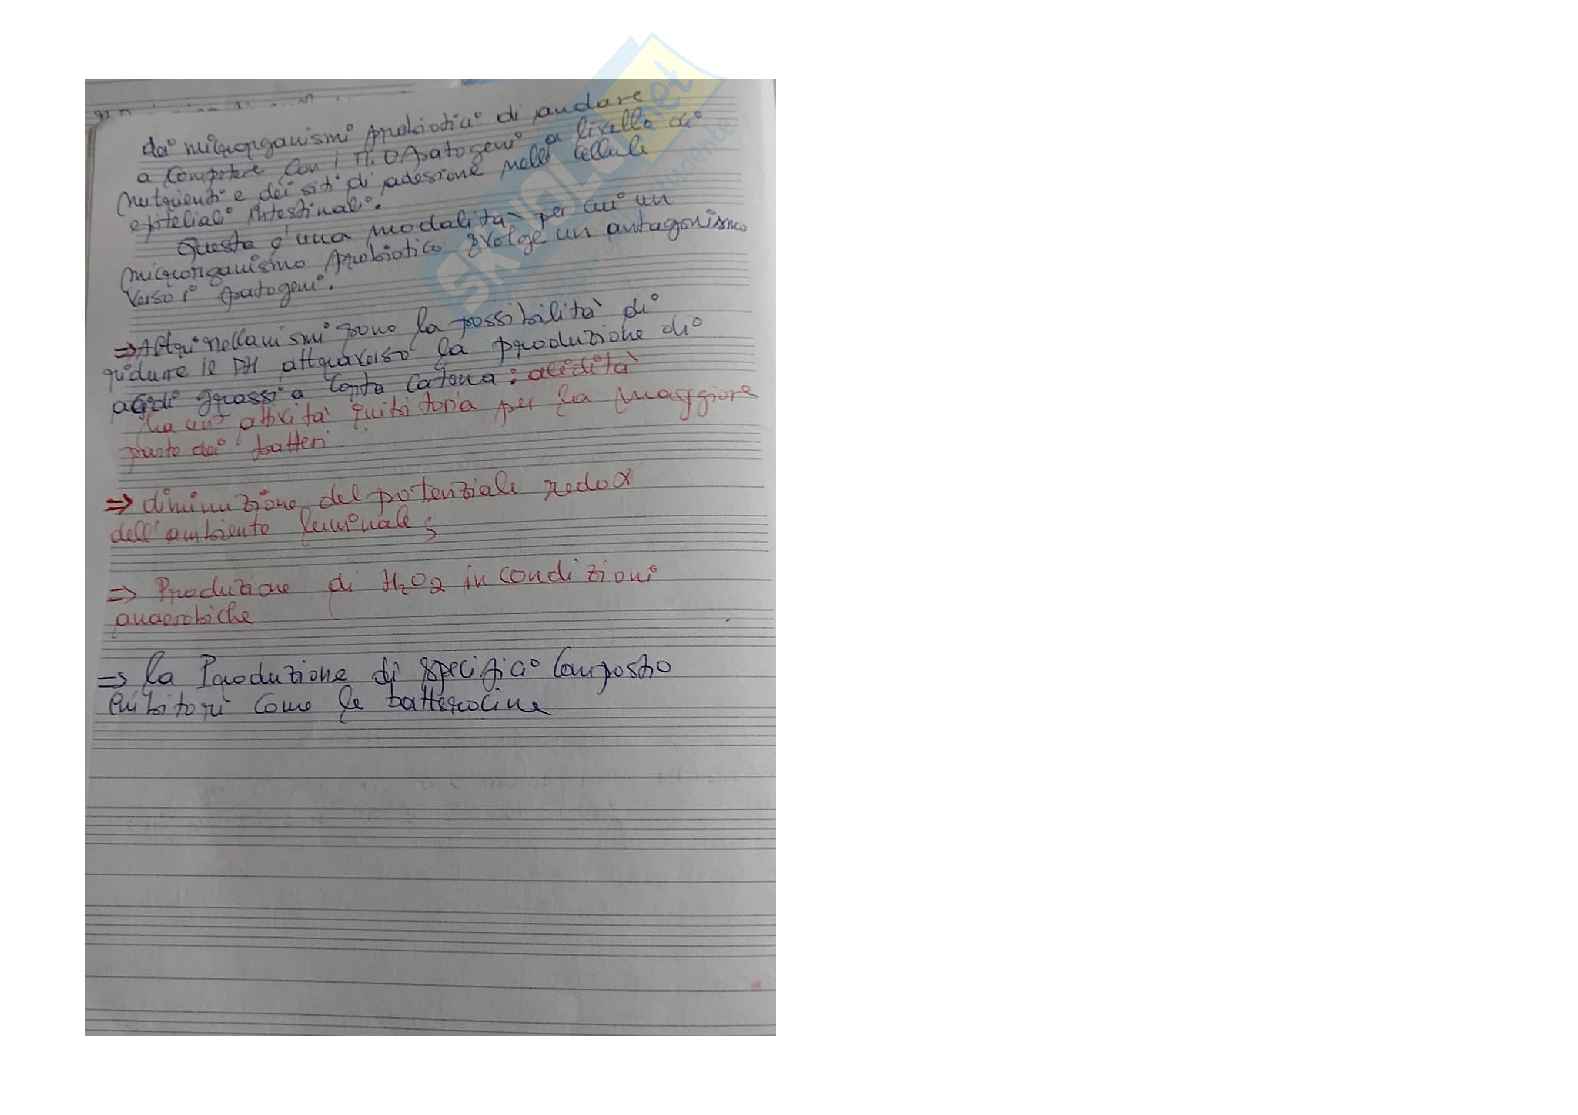 dei microrganismi probiotici di andare
a competere con i M.O patogeni a livello di
nutrienti e dei siti di adesione nelle cellule
epiteliali intestinali.
Questa è una modalità per cui un
microrganismo probiotico svolge un antagonismo
verso i patogeni.
⇒ Altri meccanismi sono la possibilità di
ridurre il PH attraverso la produzione di
acidi grassi a corta catena: acidità
ha un' attività inibitoria per la maggiore
parte dei batteri
⇒ diminuzione del potenziale redox
dell'ambiente luminale;
⇒ Produzione di H₂O₂ in condizioni
anaerobiche
⇒ la Produzione di specifici composti
inibitori come le batteriocine
SKUOLA.net